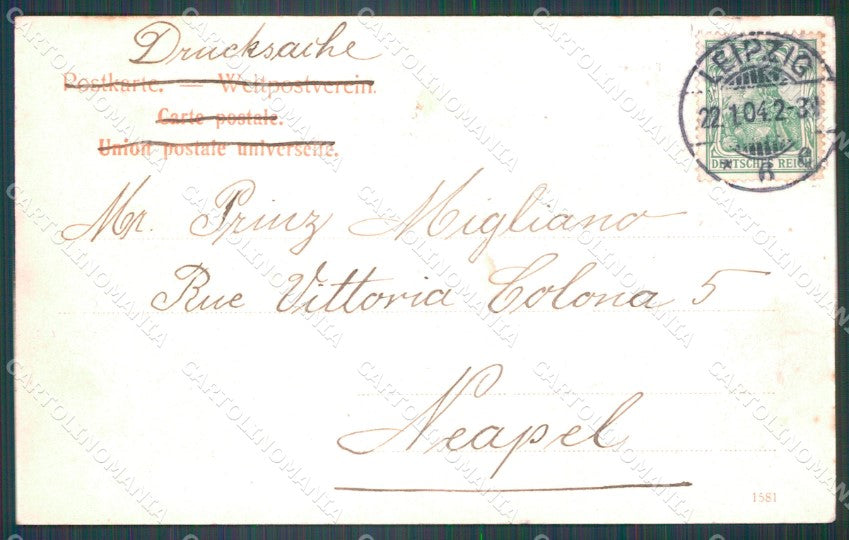 Drucksache
Postkarte. — Weltpostverein.
Carte postale.
Union postale universelle.
LEIPZIG
22.1.04.2-3
DEUTSCHES REICH
Mr. Prinz Migliano
Rue Vittoria Colona 5
Neapel
1581
CARTOLINOMANIA